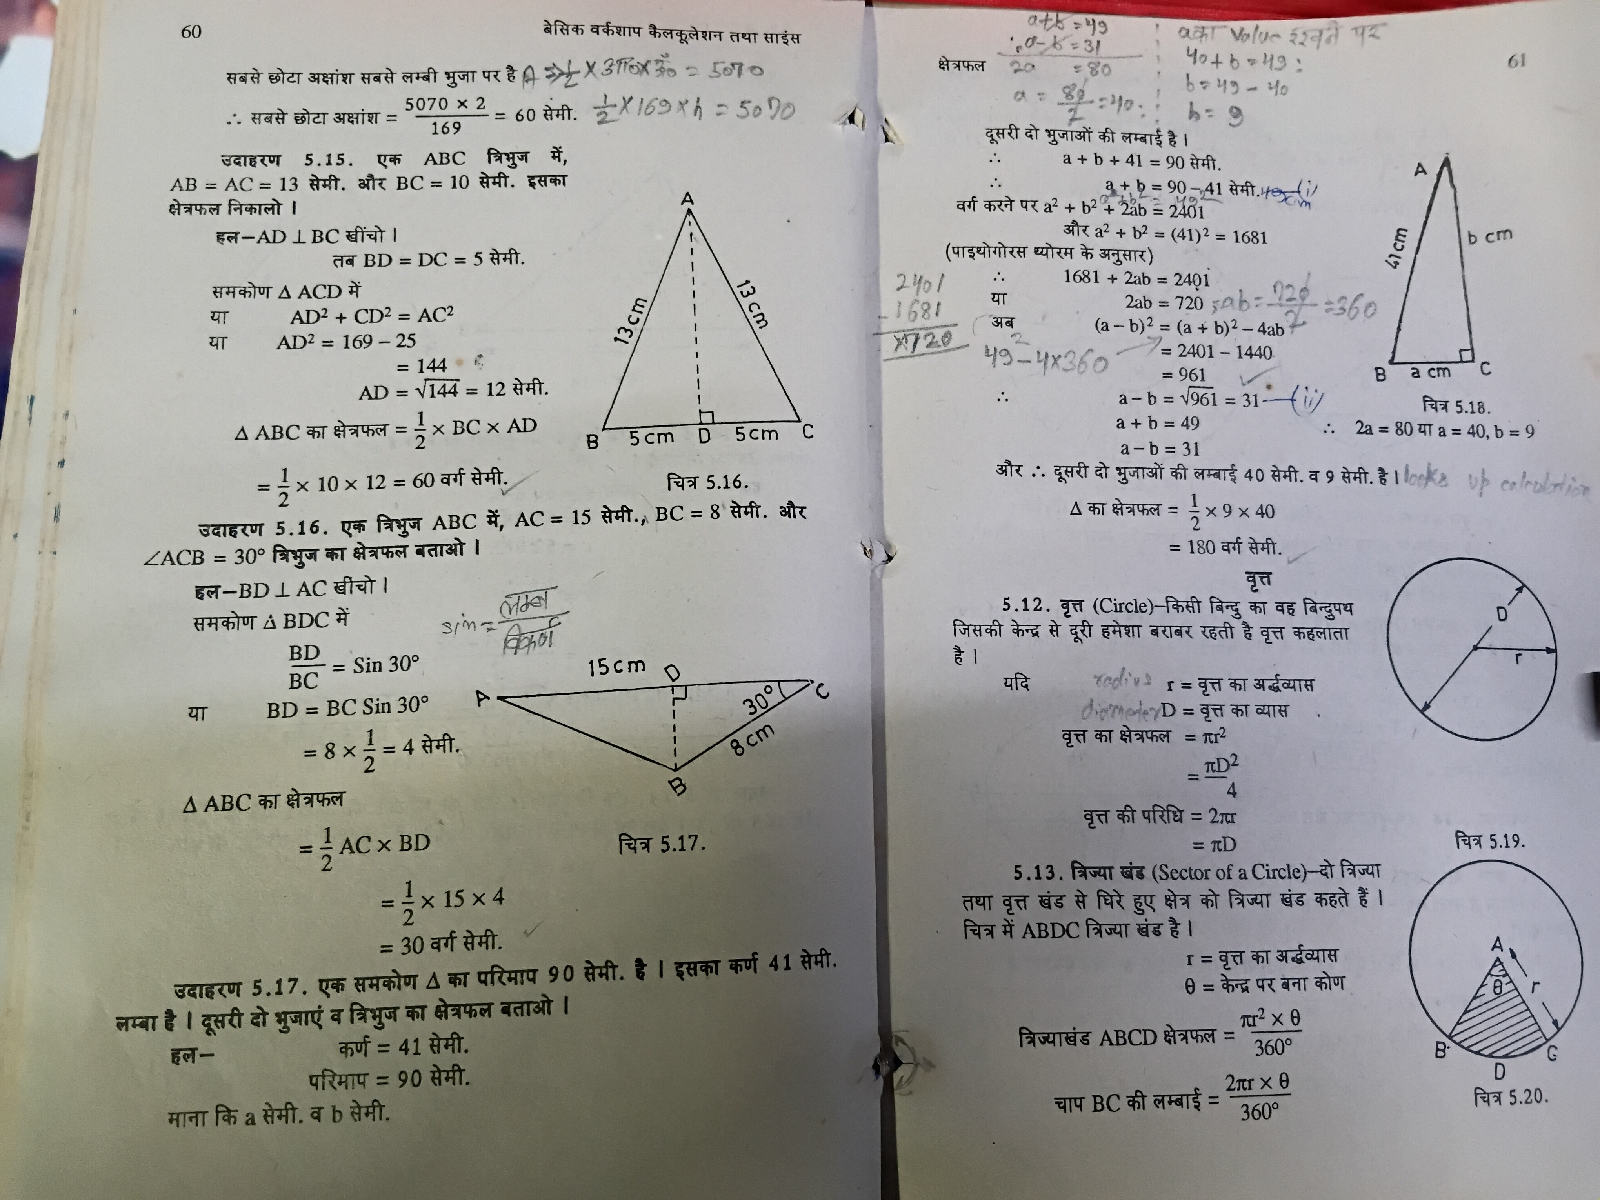 60
बेसिक वर्कशाप कैलकूलेशन तथा साइंस
सबसे छोटा अक्षांश सबसे लम्बी भुजा पर है
∴ सबसे छोटा अक्षांश = 5070 × 2 / 169 = 60 सेमी. 1/2 × 169 × h = 5070
उदाहरण 5.15. एक ABC त्रिभुज में,
AB = AC = 13 सेमी. और BC = 10 सेमी. इसका
क्षेत्रफल निकालो ।
हल–AD ⊥ BC खींचो ।
तब BD = DC = 5 सेमी.
समकोण Δ ACD में
या AD² + CD² = AC²
या AD² = 169 – 25
= 144
AD = √144 = 12 सेमी.
Δ ABC का क्षेत्रफल = 1/2 × BC × AD
= 1/2 × 10 × 12 = 60 वर्ग सेमी.
A
13 cm
13 cm
B 5 cm D 5 cm C
चित्र 5.16.
उदाहरण 5.16. एक त्रिभुज ABC में, AC = 15 सेमी., BC = 8 सेमी. और
∠ACB = 30° त्रिभुज का क्षेत्रफल बताओ ।
हल–BD ⊥ AC खींचो ।
समकोण Δ BDC में
sin = लम्ब / विकर्ण
BD/BC = Sin 30°
या BD = BC Sin 30°
= 8 × 1/2 = 4 सेमी.
Δ ABC का क्षेत्रफल
= 1/2 AC × BD
= 1/2 × 15 × 4
= 30 वर्ग सेमी.
15 cm D
A 30° C
8 cm
B
चित्र 5.17.
उदाहरण 5.17. एक समकोण Δ का परिमाप 90 सेमी. है । इसका कर्ण 41 सेमी.
लम्बा है । दूसरी दो भुजाएं व त्रिभुज का क्षेत्रफल बताओ ।
हल– कर्ण = 41 सेमी.
परिमाप = 90 सेमी.
माना कि a सेमी. व b सेमी.
61
a+b = 49
a–b = 31
= 80
a = 80/2 = 40
a का value रखने पर
40 + b = 49
b = 49 – 40
b = 9
क्षेत्रफल
दूसरी दो भुजाओं की लम्बाई है ।
∴ a + b + 41 = 90 सेमी.
∴ a + b = 90 – 41 सेमी. (i)
वर्ग करने पर a² + b² + 2ab = 2401
और a² + b² = (41)² = 1681
(पाइथोगोरस थ्योरम के अनुसार)
∴ 1681 + 2ab = 2401
या 2ab = 720 ab = 720/2 = 360
अब (a – b)² = (a + b)² – 4ab
= 2401 – 1440
= 961
∴ a – b = √961 = 31 (ii)
a + b = 49
a – b = 31
∴ 2a = 80 या a = 40, b = 9
2401
– 1681
720
49² – 4×360
A
41 cm
b cm
B a cm C
चित्र 5.18.
और ∴ दूसरी दो भुजाओं की लम्बाई 40 सेमी. व 9 सेमी. है । looks up calculation
Δ का क्षेत्रफल = 1/2 × 9 × 40
= 180 वर्ग सेमी.
वृत्त
5.12. वृत्त (Circle)–किसी बिन्दु का वह बिन्दुपथ
जिसकी केन्द्र से दूरी हमेशा बराबर रहती है वृत्त कहलाता
है ।
यदि radius r = वृत्त का अर्द्धव्यास
diameter D = वृत्त का व्यास
वृत्त का क्षेत्रफल = πr²
= πD²/4
वृत्त की परिधि = 2πr
= πD
D
r
चित्र 5.19.
5.13. त्रिज्या खंड (Sector of a Circle)–दो त्रिज्या
तथा वृत्त खंड से घिरे हुए क्षेत्र को त्रिज्या खंड कहते हैं ।
चित्र में ABDC त्रिज्या खंड है ।
r = वृत्त का अर्द्धव्यास
θ = केन्द्र पर बना कोण
त्रिज्याखंड ABCD क्षेत्रफल = πr² × θ / 360°
चाप BC की लम्बाई = 2πr × θ / 360°
A
θ r
B C
D
चित्र 5.20.